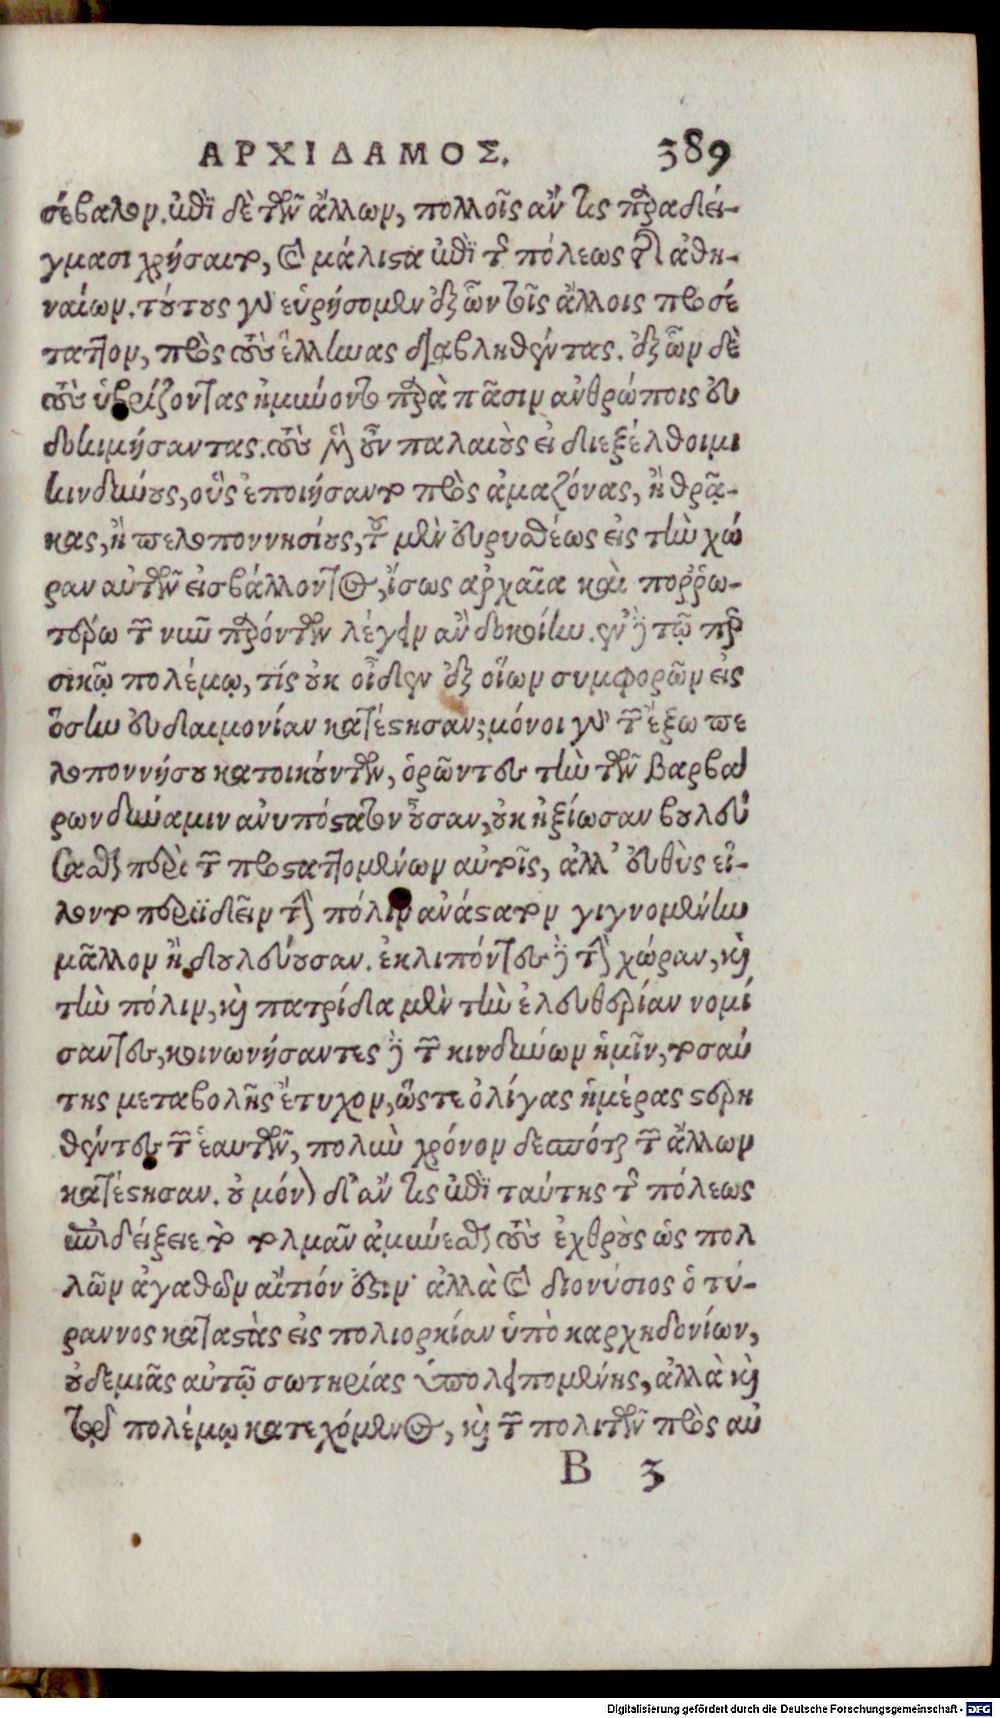 ΑΡΧΙΔΑΜΟΣ. 389
σέβαλον. ἐπὶ δὲ τῶν ἄλλων, πολλοῖς ἄν τις παραδεί-
γμασι χρήσαιτο, καὶ μάλιστα ἐπὶ τῆς πόλεως τῶν ἀθη-
ναίων. τούτους γὰρ εὑρήσομεν ἐξ ὧν τοῖς ἄλλοις προσέ
ταττον, πρὸς τοὺς ἕλληνας διαβληθέντας. ἐξ ὧν δὲ
τοὺς ὑβρίζοντας ἠμύνοντο παρὰ πᾶσιν ἀνθρώποις εὐ
δοκιμήσαντας. τοὺς μὲν οὖν παλαιοὺς εἰ διεξέλθοιμι
κινδύνους, οὓς ἐποιήσαντο πρὸς ἀμαζόνας, ἢ θρᾷ-
κας, ἢ πελοποννησίους, τοὺς μὲν εὐρυσθέως εἰς τὴν χώ
ραν αὐτῶν εἰσβάλλοντος, ἴσως ἀρχαῖα καὶ ποῤῥω-
τέρω τῶν νῦν παρόντων λέγειν ἂν δοκοίην. ἐν δὲ τῷ περ
σικῷ πολέμῳ, τίς οὐκ οἶδεν ἐξ οἵων συμφορῶν εἰς
ὅσην εὐδαιμονίαν κατέστησαν; μόνοι γὰρ τῶν ἔξω πε
λοποννήσου κατοικούντων, ὁρῶντες τὴν τῶν βαρβά
ρων δύναμιν ἀνυπόστατον οὖσαν, οὐκ ἠξίωσαν βουλεύ
σασθαι περὶ τῶν προσταττομένων αὐτοῖς, ἀλλ' εὐθὺς εἵ-
λοντο περιϊδεῖν τὴν πόλιν ἀνάστατον γιγνομένην
μᾶλλον ἢ δουλεύουσαν. ἐκλιπόντες δὲ τὴν χώραν, καὶ
τὴν πόλιν, καὶ πατρίδα μὲν τὴν ἐλευθερίαν νομί
σαντες, κοινωνήσαντες δὲ τῶν κινδύνων ἡμῖν, τοσαύ
της μεταβολῆς ἔτυχον, ὥστε ὀλίγας ἡμέρας στερη
θέντες τῶν ἑαυτῶν, πολὺν χρόνον δεσπόται τῶν ἄλλων
κατέστησαν. οὐ μόνον δ' ἄν τις ἐπὶ ταύτης τῆς πόλεως
ἐπιδείξειε τὸ τολμᾶν ἀμύνεσθαι τοὺς ἐχθροὺς ὡς πολ
λῶν ἀγαθῶν αἴτιόν ἐστιν· ἀλλὰ καὶ διονύσιος ὁ τύ-
ραννος καταστὰς εἰς πολιορκίαν ὑπὸ καρχηδονίων,
οὐδεμιᾶς αὐτῷ σωτηρίας ὑπολειπομένης, ἀλλὰ καὶ
τῷ πολέμῳ κατεχόμενος, καὶ τῶν πολιτῶν πρὸς αὐ
B 3
Digitalisierung gefördert durch die Deutsche Forschungsgemeinschaft - DFG